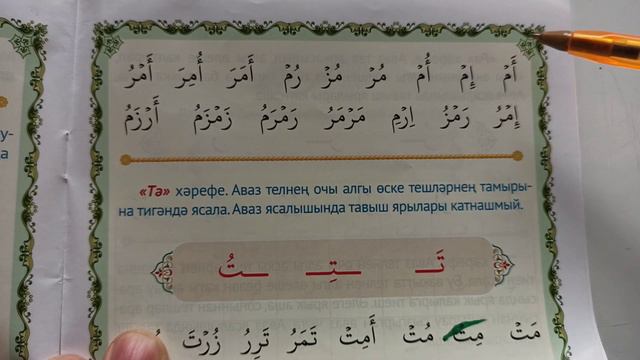 أَمْ إِمْ أُمْ مُرْ مُزْ رُمْ أَمَرَ أُمِرَ أَمْرُ
إِمْرُ رَمْزُ اِرْمِ مَرْمَرُ رَمْرَمُ زَمْزَمُ أَرْزَمُ
«Тә» хәрефе. Аваз телнең очы алгы өске тешләрнең тамыры-
на тигәндә ясала. Аваз ясалышында тавыш ярылары катнашмый.
تَـ ـتِـ ـتُ
مَتْ مِتْ مُتْ أَمِتْ تَمَرُ تَرِرُ زُرْتَ